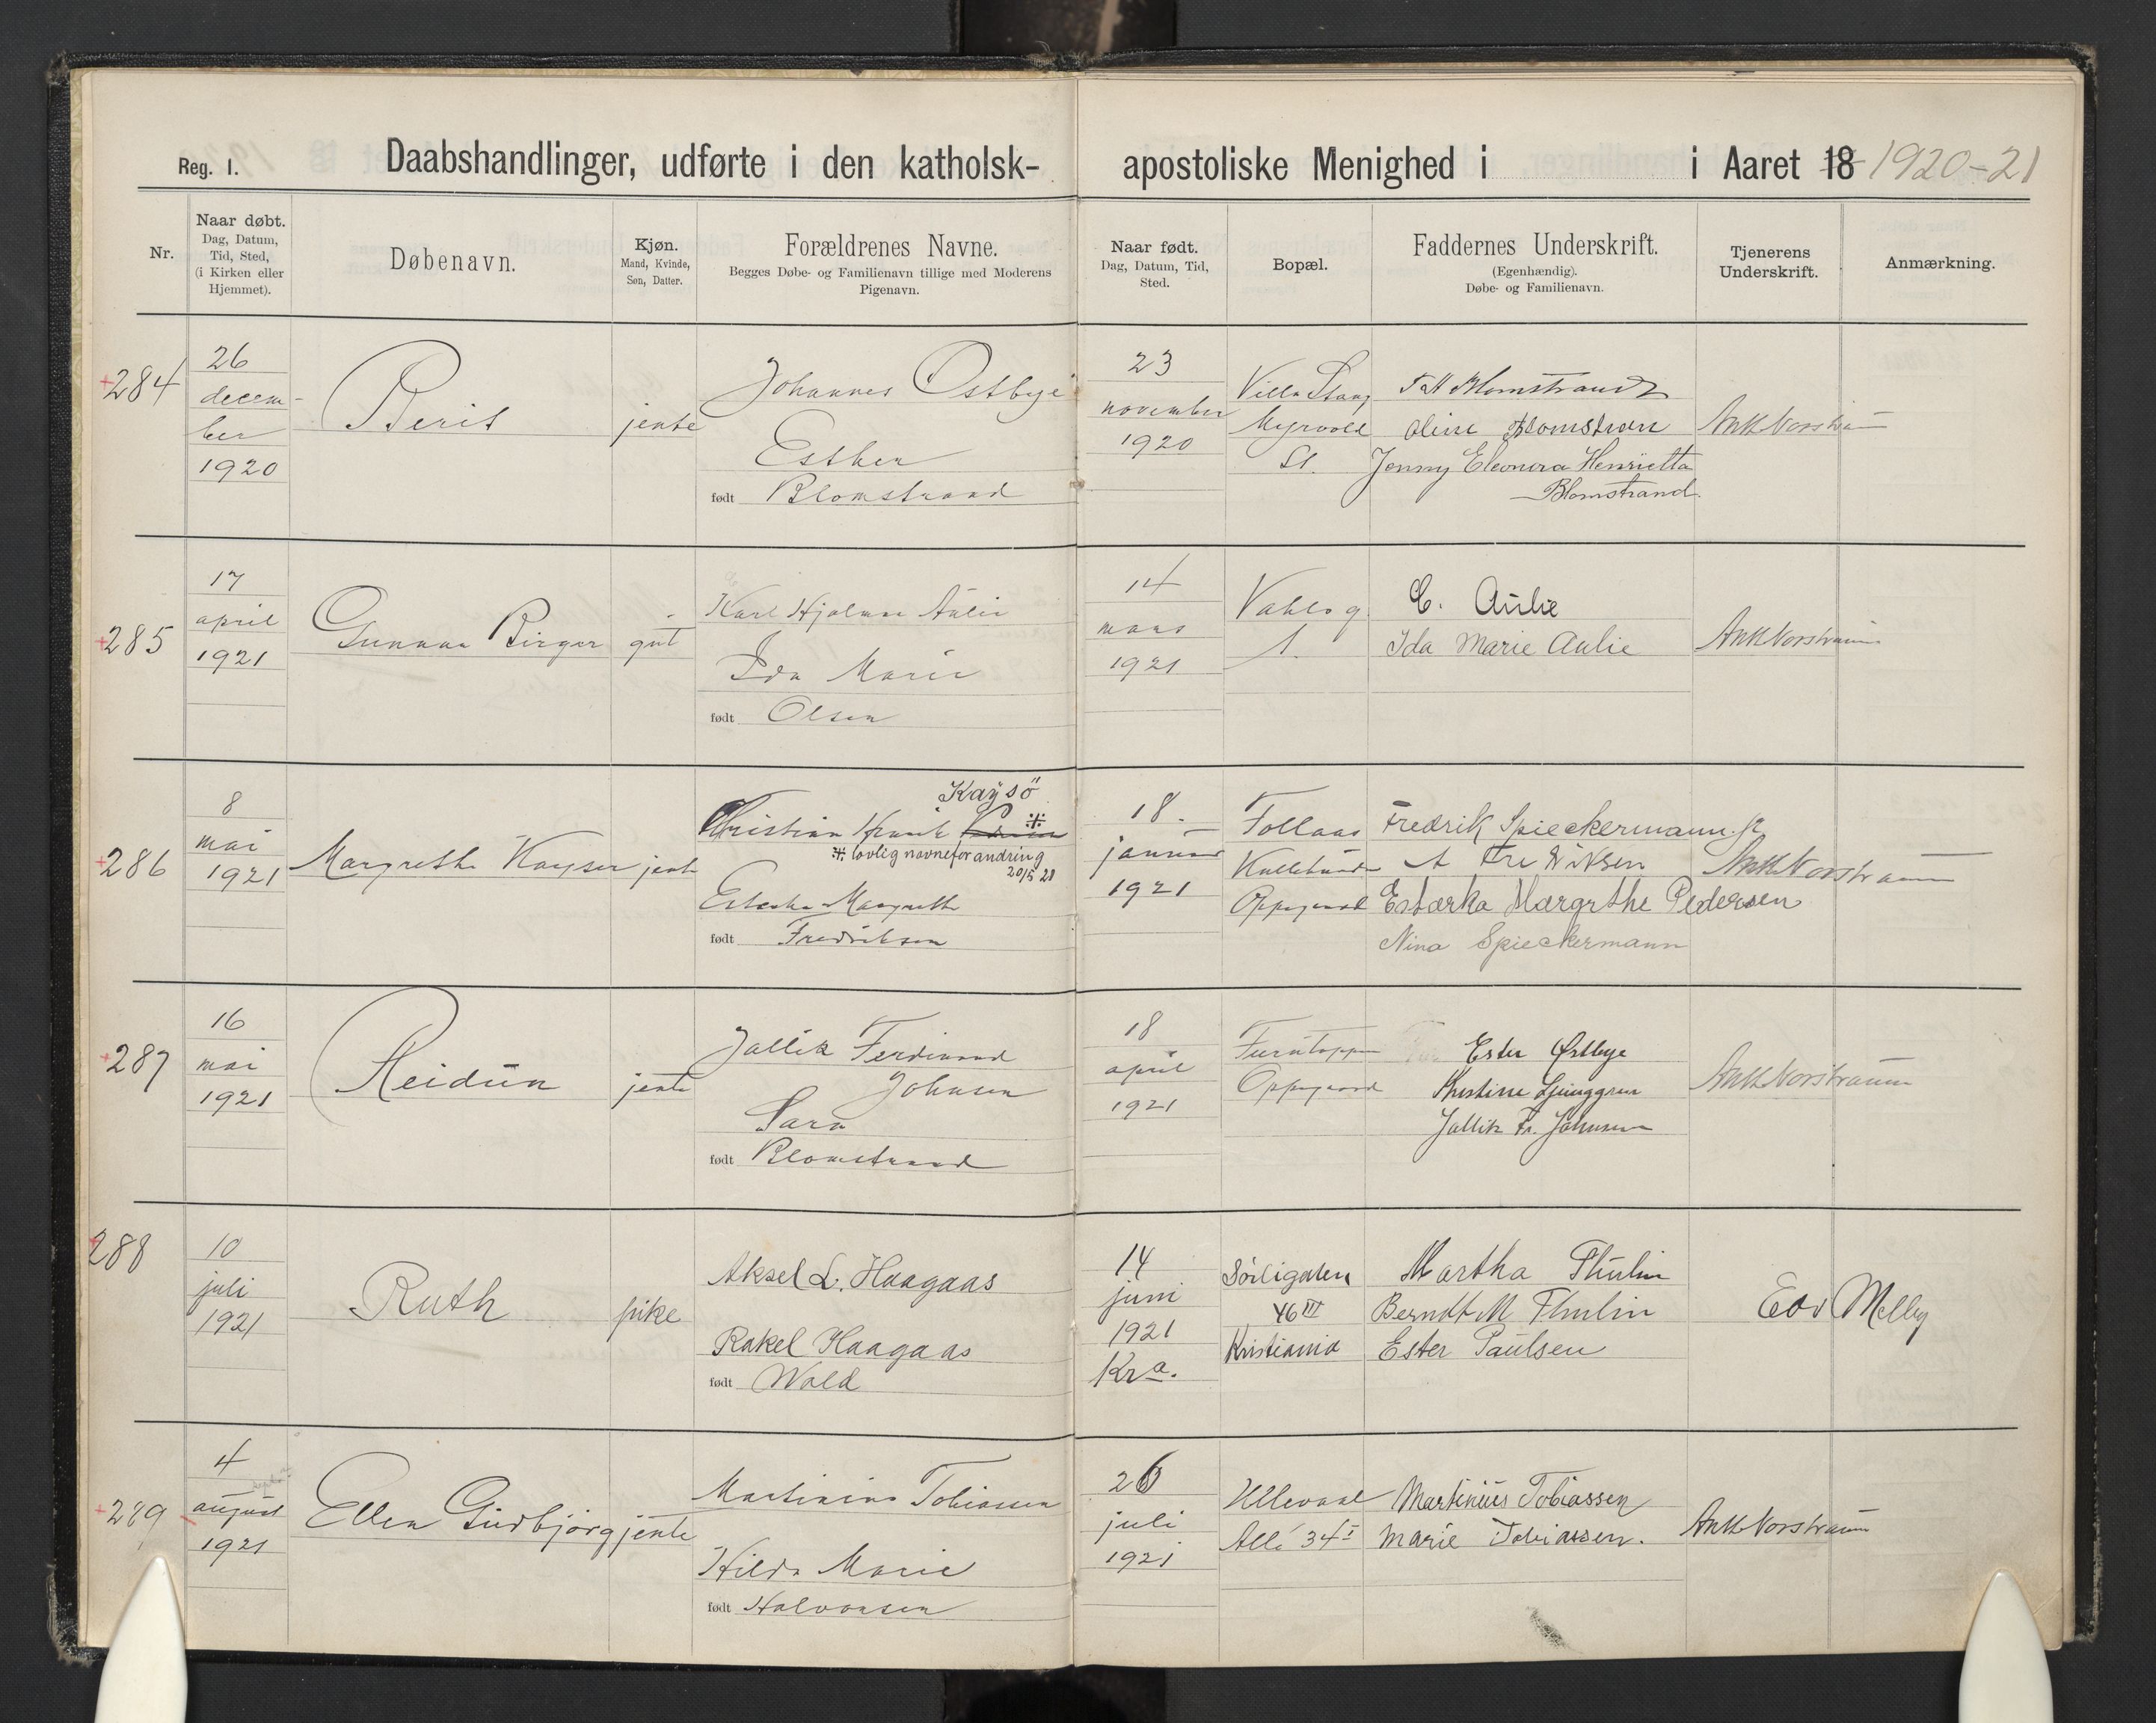 Reg. 1. Daabshandlinger, udførte i den katholsk-apostoliske Menighed i i Aaret 18 1920-21
Nr.
Naar døbt.
Dag, Datum,
Tid, Sted,
(i Kirken eller
Hjemmet).
Døbenavn.
Kjøn.
Mand, Kvinde,
Søn, Datter.
Forældrenes Navne.
Begges Døbe- og Familienavn tillige med Moderens
Pigenavn.
Naar født.
Dag, Datum, Tid,
Sted.
Bopæl.
Faddernes Underskrift.
(Egenhændig).
Døbe- og Familienavn.
Tjenerens
Underskrift.
Anmærkning.
+284
26
decem-
ber
1920
Berit
jente
Johannes Østbye
Esther
født Blomstrand
23
november
1920
Villa
Myrvold
St.
Blomstrand
Oline Blomstran
Jenny Eleonora Henrietta
Blomstrand.
+285
17
april
1921
Gunnar Birger
gut
Karl Hjalmar Aulie
Ida Marie
født Olsen
14
mars
1921
Vahls g.
1.
C. Aulie
Ida Marie Aulie
+286
8
mai
1921
Margrethe Kayser
jente
Kaÿsö
Christian Henrik
※ lovlig navneforandring
20/5 21
Margrethe
født Fredriksen
18.
januar
1921
Follaas
Kullebund
Oppegaard
Fredrik Spieckermann jr
A Fredriksen
Estarka Margrthe Pedersen
Nina Spieckermann
+287
16
mai
1921
Reidun
jente
Jallik Ferdinand
Johnsen
Sara
født Blomstrand
18
april
1921
Furutoppen
Oppegaard
Ester Østbye
Kristine Ljunggren
Jallik Fr. Johnsen
288
10
juli
1921
Ruth
pike
Aksel L. Haagaas
Rakel Haagaas
født Wold
14
juni
1921
Kra.
Sörligaten
46 III
Kristiania
Martha Thulin
Berndt M Thulin
Ester Paulsen
Edv Melby
+289
4
august
1921
Ellen Gudbjørg
jente
Martinius Tobiassen
Hilda Marie
født Halvorsen
26
juli
1921
Ullevaal
Allé 34 I
Martinius Tobiassen
Marie Tobiassen.